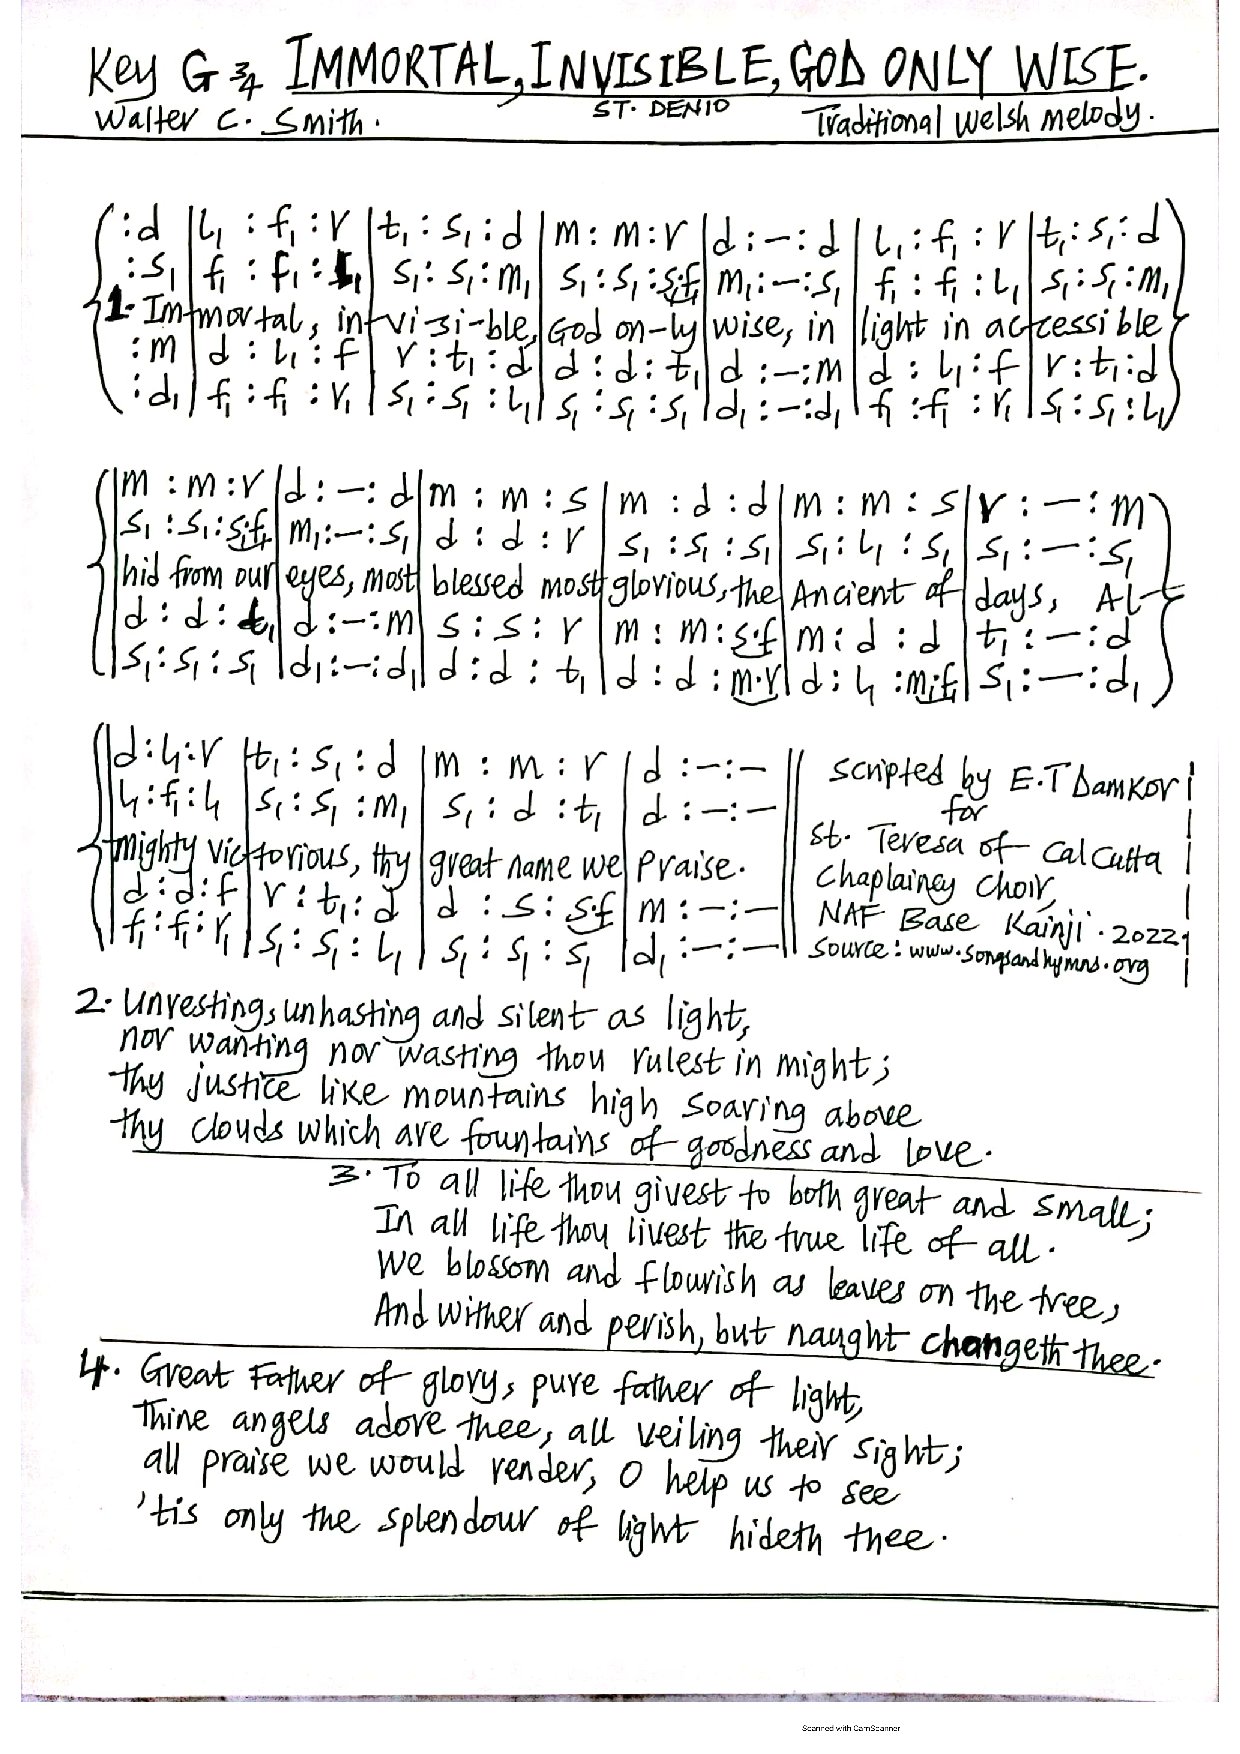 Key G 3/4 IMMORTAL, INVISIBLE, GOD ONLY WISE.
Walter C. Smith. ST. DENIO Traditional Welsh melody.
:d | l₁ : f₁ : r | t₁ : s₁ : d | m : m : r | d : – : d | l₁ : f₁ : r | t₁ : s₁ : d
:s₁ | f₁ : f₁ : l₁ | s₁ : s₁ : m₁ | s₁ : s₁ : s₁.f₁ | m₁ : – : s₁ | f₁ : f₁ : l₁ | s₁ : s₁ : m₁
1. Immortal, in-vi-si-ble, God on-ly wise, in light in accessible
:m | d : l₁ : f | r : t₁ : d | d : d : t₁ | d : – : m | d : l₁ : f | r : t₁ : d
:d₁ | f₁ : f₁ : r₁ | s₁ : s₁ : l₁ | s₁ : s₁ : s₁ | d₁ : – : d₁ | f₁ : f₁ : r₁ | s₁ : s₁ : l₁
m : m : r | d : – : d | m : m : s | m : d : d | m : m : s | r : – : m
s₁ : s₁ : s₁.f₁ | m₁ : – : s₁ | d : d : r | s₁ : s₁ : s₁ | s₁ : l₁ : s₁ | s₁ : – : s₁
hid from our eyes, most blessed most glorious, the Ancient of days, Al-
d : d : t₁ | d : – : m | s : s : r | m : m : s.f | m : d : d | t₁ : – : d
s₁ : s₁ : s₁ | d₁ : – : d₁ | d : d : t₁ | d : d : m.r | d : l₁ : m₁.f₁ | s₁ : – : d₁
d : l₁ : r | t₁ : s₁ : d | m : m : r | d : – : –
l₁ : f₁ : l₁ | s₁ : s₁ : m₁ | s₁ : d : t₁ | d : – : –
mighty victorious, thy great name we Praise.
d : d : f | r : t₁ : d | d : s : s.f | m : – : –
f₁ : f₁ : r₁ | s₁ : s₁ : l₁ | s₁ : s₁ : s₁ | d₁ : – : –
Scripted by E.T Damkor
for
St. Teresa of Calcutta
Chaplainey Choir,
NAF Base Kainji. 2022
Source: www.songsandhymns.org
2. Unresting, unhasting and silent as light,
nor wanting nor wasting thou rulest in might;
thy justice like mountains high soaring above
thy clouds which are fountains of goodness and love.
3. To all life thou givest to both great and small;
In all life thou livest the true life of all.
We blossom and flourish as leaves on the tree,
And wither and perish, but naught changeth thee.
4. Great Father of glory, pure father of light,
Thine angels adore thee, all veiling their sight;
all praise we would render, O help us to see
'tis only the splendour of light hideth thee.
Scanned with CamScanner